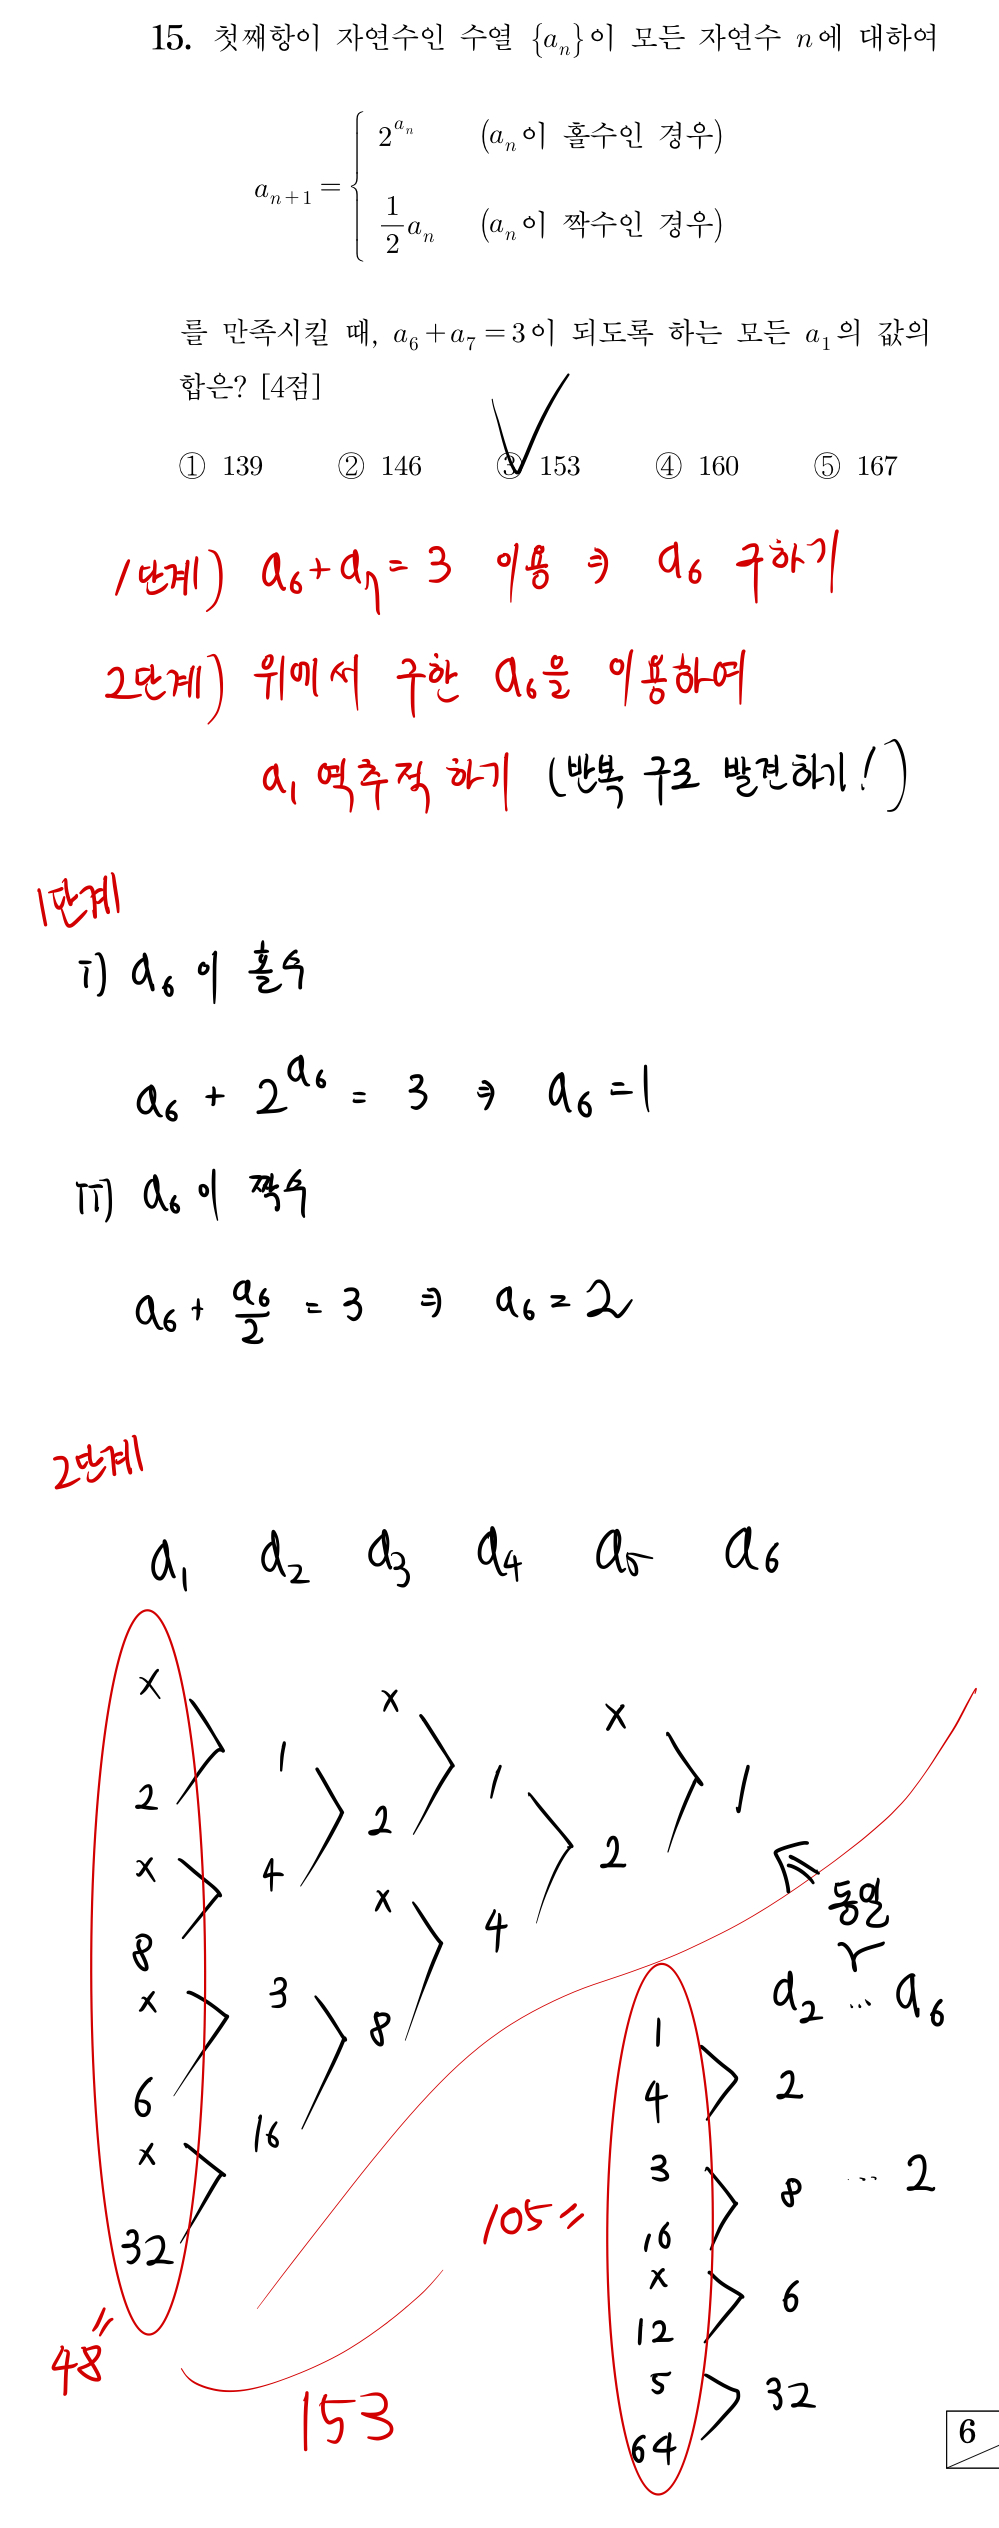 15. 첫째항이 자연수인 수열 {aₙ}이 모든 자연수 n에 대하여
aₙ₊₁ = { 2^(aₙ) (aₙ이 홀수인 경우)
½aₙ (aₙ이 짝수인 경우)
를 만족시킬 때, a₆+a₇=3이 되도록 하는 모든 a₁의 값의
합은? [4점]
① 139 ② 146 ③ 153 ④ 160 ⑤ 167
1단계) a₆+a₇=3 이용 ⇒ a₆ 구하기
2단계) 위에서 구한 a₆을 이용하여
a₁ 역추적 하기 (반복 구조 발견하기!)
1단계
i) a₆이 홀수
a₆ + 2^(a₆) = 3 ⇒ a₆ = 1
ii) a₆이 짝수
a₆ + a₆/2 = 3 ⇒ a₆ = 2
2단계
a₁ a₂ a₃ a₄ a₅ a₆
x x x
2 1 2 1 2 1
x 4 x 4
8 3 8
x 16
6
x
32
48 =
동일
a₂ ... a₆
1
4 2
3
16 8 ... 2
x
12 6
5
64 32
105 =
153
6